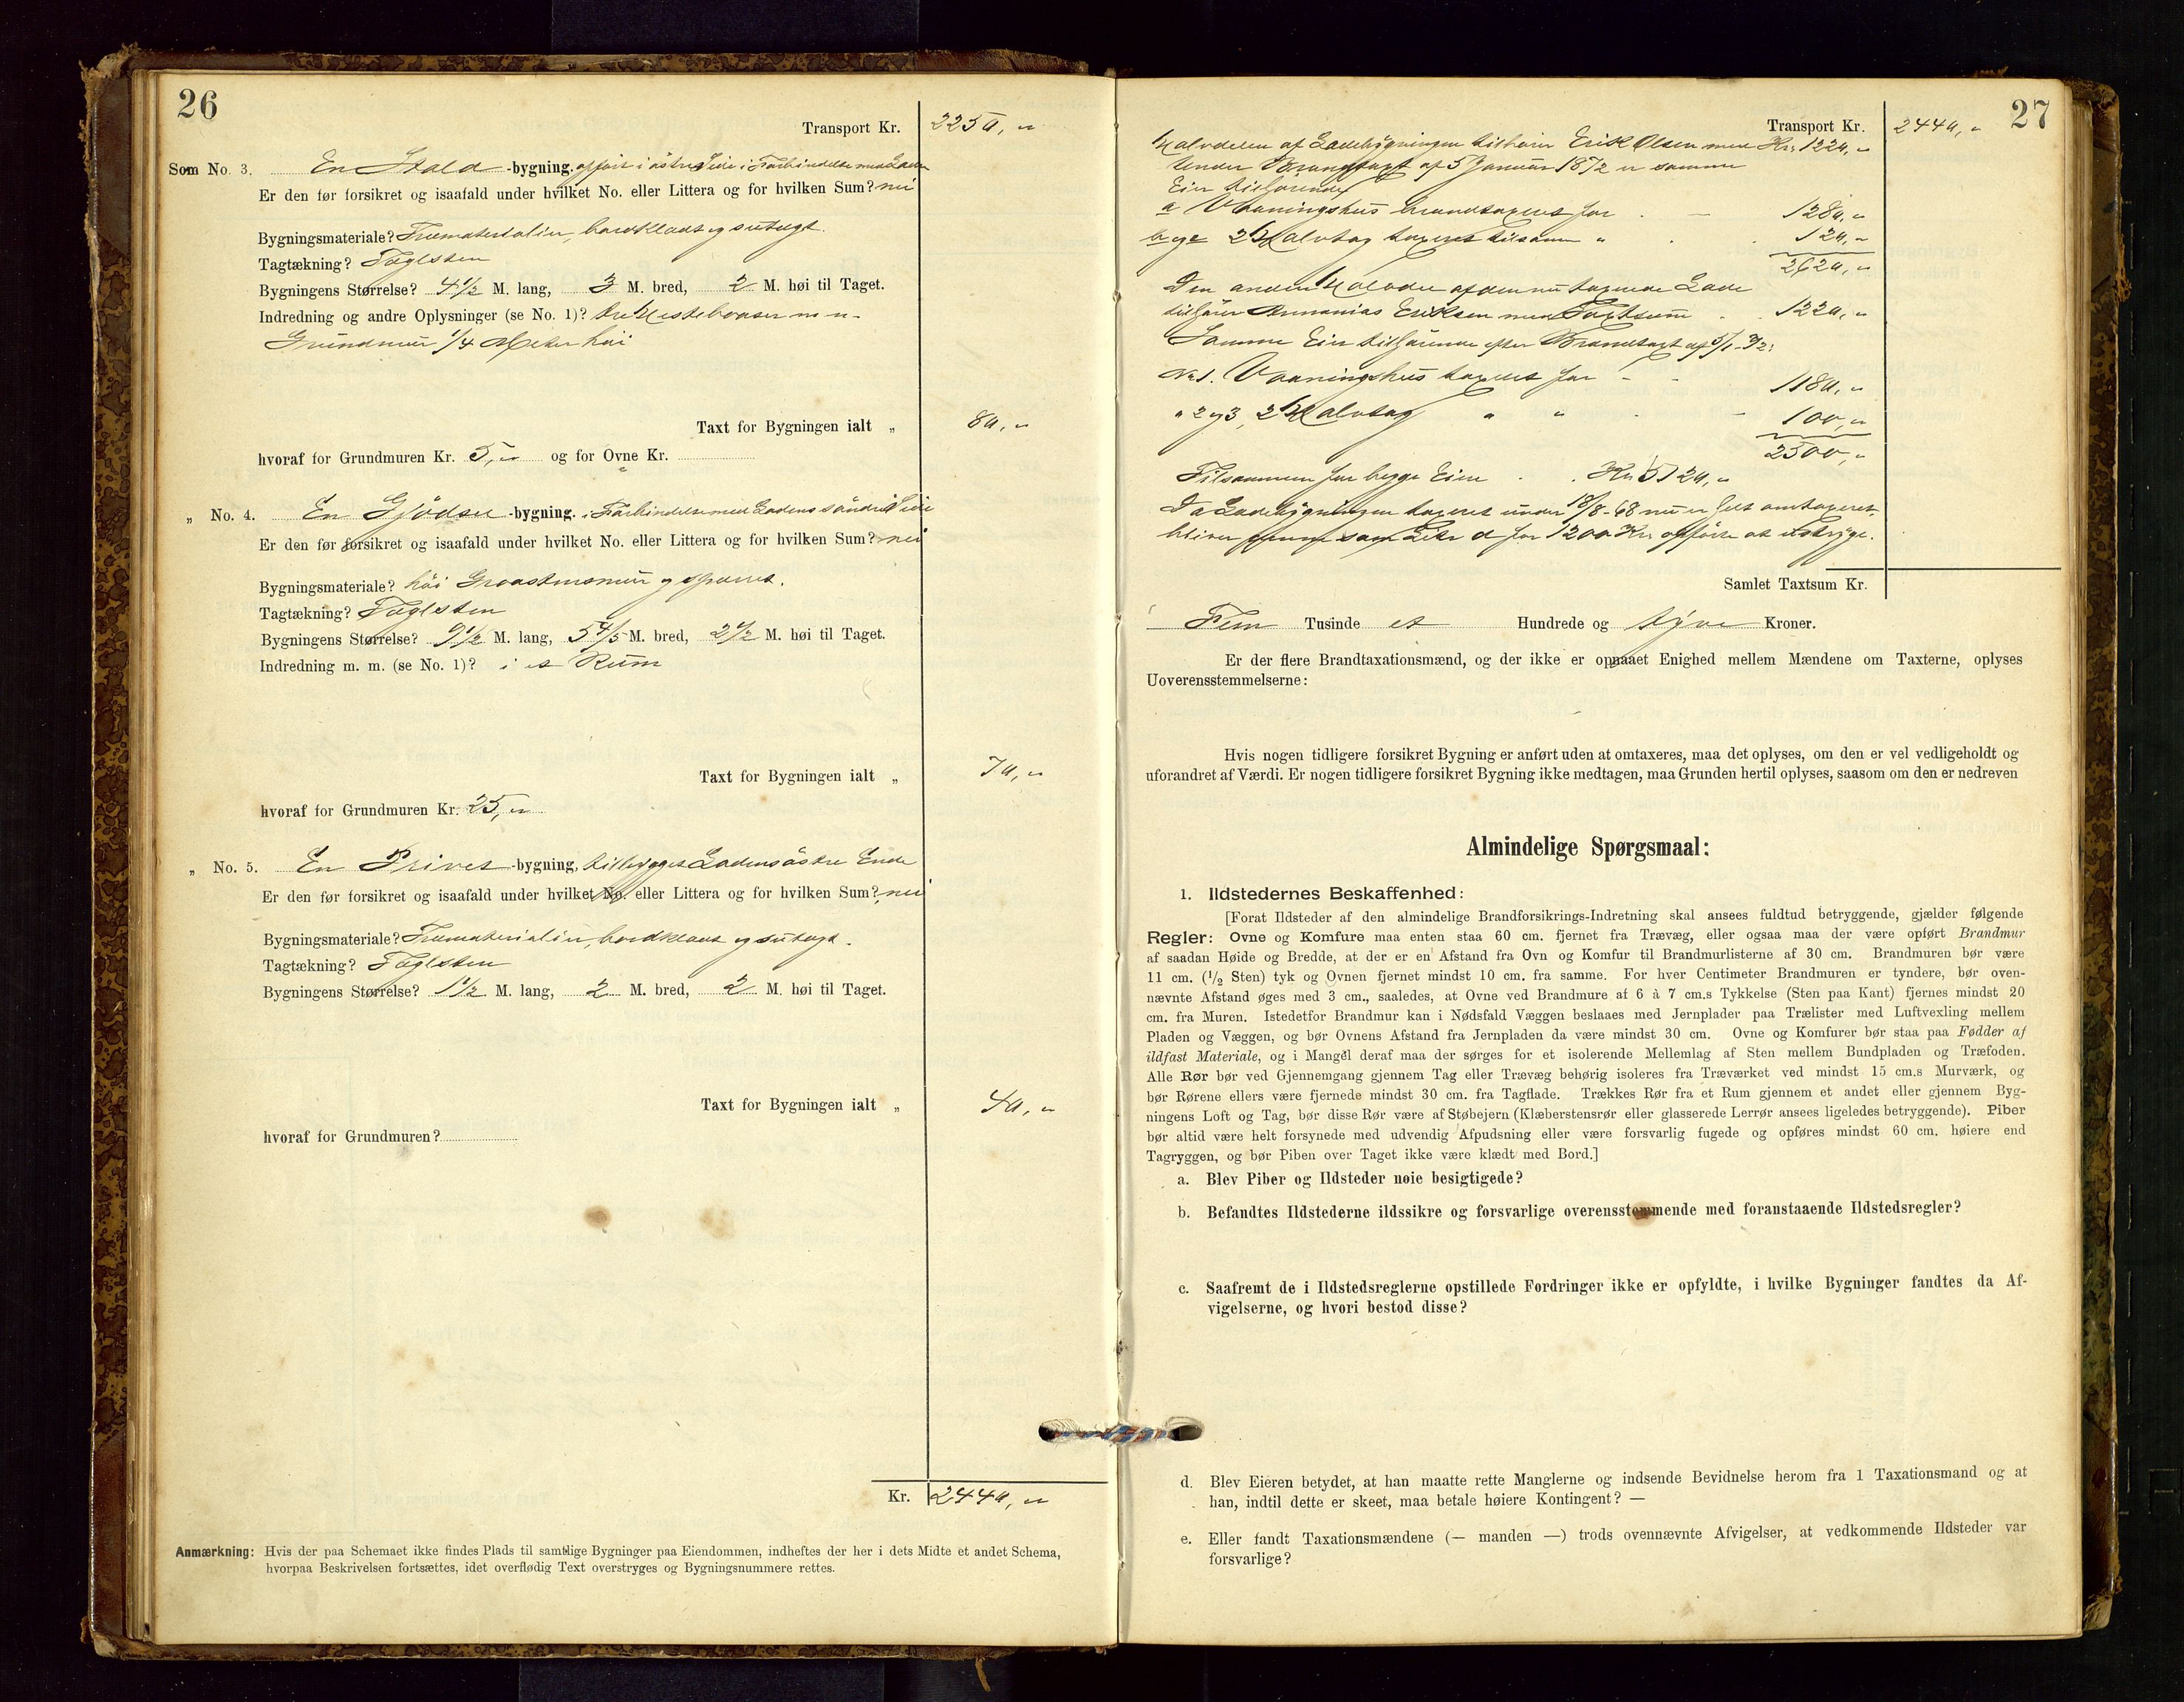 26
Transport Kr. 2250,"
Som No. 3. En Stald -bygning. opført i østre Side i Forbindelse med Laden
Er den før forsikret og isaafald under hvilket No. eller Littera og for hvilken Sum? nei
Bygningsmateriale? Træmaterialier, bordklædt og sutagt.
Tagtækning? Taglsten
Bygningens Størrelse? 4 1/2 M. lang, 3 M. bred, 2 M. høi til Taget.
Indredning og andre Oplysninger (se No. 1)? tre Hestebaaser m m
Grundmur 1/4 Meter høi
Taxt for Bygningen ialt „ 80,"
hvoraf for Grundmuren Kr. 5,"  og for Ovne Kr.
„ No. 4. En Gjødsel -bygning. i Forbindelse med Ladens søndre Side
Er den før forsikret og isaafald under hvilket No. eller Littera og for hvilken Sum? nei
Bygningsmateriale? høi Graastensmur og Sparret.
Tagtækning? Taglsten
Bygningens Størrelse? 9 1/2 M. lang, 5 4/5 M. bred, 2 1/2 M. høi til Taget.
Indredning m. m. (se No. 1)? i et Rum
Taxt for Bygningen ialt „ 70,"
hvoraf for Grundmuren Kr. 25,"
„ No. 5. En Privet -bygning, tilbygget Ladens østre Ende
Er den før forsikret og isaafald under hvilket No. eller Littera og for hvilken Sum? nei
Bygningsmateriale? Træmaterialier, bordklædt og sutagt.
Tagtækning? Taglsten
Bygningens Størrelse? 1 1/2 M. lang, 2 M. bred, 2 M. høi til Taget.
Taxt for Bygningen ialt „ 40,"
hvoraf for Grundmuren?
Kr. 2440,"
Anmærkning: Hvis der paa Schemaet ikke findes Plads til samtlige Bygninger paa Eiendommen, indheftes der her i dets Midte et andet Schema,
hvorpaa Beskrivelsen fortsættes, idet overflødig Text overstryges og Bygningsnummere rettes.
27
Transport Kr. 2440,"
Halvdelen af Ladebygningen tilhører Erik Olsen med Kr. 1220,"
Under Brandtaxt af 5 Januar 1872 er samme
Eier tilhørende
a Vaaningshus brandtaxeret for 1280,"
b og c 2 Halvtag taxeret tilsam " 120,"
2620,"
Den anden Halvdel af den nu taxerede Lade
tilhører Ananias Eriksen med Taxtsum 1220,"
Samme Eier tilhørende efter Brandtaxt af 5/1-72:
No 1. Vaaningshus taxeret for 1180,"
" 2 og 3, 2 Halvtag " " 100,"
2500,"
Tilsammen for begge Eiere Kr. 5120,"
Da Ladebygningen taxeret under 18/8-68 nu er helt omtaxeret
bliver denne som Litr d for 1200 Kr. opførte at udstryge.
Samlet Taxtsum Kr.
Fem Tusinde et Hundrede og tyve Kroner.
Er der flere Brandtaxationsmænd, og der ikke er opnaaet Enighed mellem Mændene om Taxterne, oplyses
Uoverensstemmelserne:
Hvis nogen tidligere forsikret Bygning er anført uden at omtaxeres, maa det oplyses, om den er vel vedligeholdt og
uforandret af Værdi. Er nogen tidligere forsikret Bygning ikke medtagen, maa Grunden hertil oplyses, saasom om den er nedreven
Almindelige Spørgsmaal:
1. Ildstedernes Beskaffenhed:
[Forat Ildsteder af den almindelige Brandforsikrings-Indretning skal ansees fuldtud betryggende, gjælder følgende
Regler: Ovne og Komfure maa enten staa 60 cm. fjernet fra Trævæg, eller ogsaa maa der være opført Brandmur
af saadan Høide og Bredde, at der er en Afstand fra Ovn og Komfur til Brandmurlisterne af 30 cm. Brandmuren bør være
11 cm. (1/2 Sten) tyk og Ovnen fjernet mindst 10 cm. fra samme. For hver Centimeter Brandmuren er tyndere, bør oven-
nævnte Afstand øges med 3 cm., saaledes, at Ovne ved Brandmure af 6 à 7 cm.s Tykkelse (Sten paa Kant) fjernes mindst 20
cm. fra Muren. Istedetfor Brandmur kan i Nødsfald Væggen beslaaes med Jernplader paa Trælister med Luftvexling mellem
Pladen og Væggen, og bør Ovnens Afstand fra Jernpladen da være mindst 30 cm. Ovne og Komfurer bør staa paa Fødder af
ildfast Materiale, og i Mangel deraf maa der sørges for et isolerende Mellemlag af Sten mellem Bundpladen og Træfoden.
Alle Rør bør ved Gjennemgang gjennem Tag eller Trævæg behørig isoleres fra Træværket ved mindst 15 cm.s Murværk, og
bør Rørene ellers være fjernede mindst 30 cm. fra Tagflade. Trækkes Rør fra et Rum gjennem et andet eller gjennem Byg-
ningens Loft og Tag, bør disse Rør være af Støbejern (Klæberstensrør eller glasserede Lerrør ansees ligeledes betryggende). Piber
bør altid være helt forsynede med udvendig Afpudsning eller være forsvarlig fugede og opføres mindst 60 cm. høiere end
Tagryggen, og bør Piben over Taget ikke være klædt med Bord.]
a. Blev Piber og Ildsteder nøie besigtigede?
b. Befandtes Ildstederne ildssikre og forsvarlige overensstemmende med foranstaaende Ildstedsregler?
c. Saafremt de i Ildstedsreglerne opstillede Fordringer ikke er opfyldte, i hvilke Bygninger fandtes da Af-
vigelserne, og hvori bestod disse?
d. Blev Eieren betydet, at han maatte rette Manglerne og indsende Bevidnelse herom fra 1 Taxationsmand og at
han, indtil dette er skeet, maa betale høiere Kontingent? —
e. Eller fandt Taxationsmændene (— manden —) trods ovennævnte Afvigelser, at vedkommende Ildsteder var
forsvarlige?